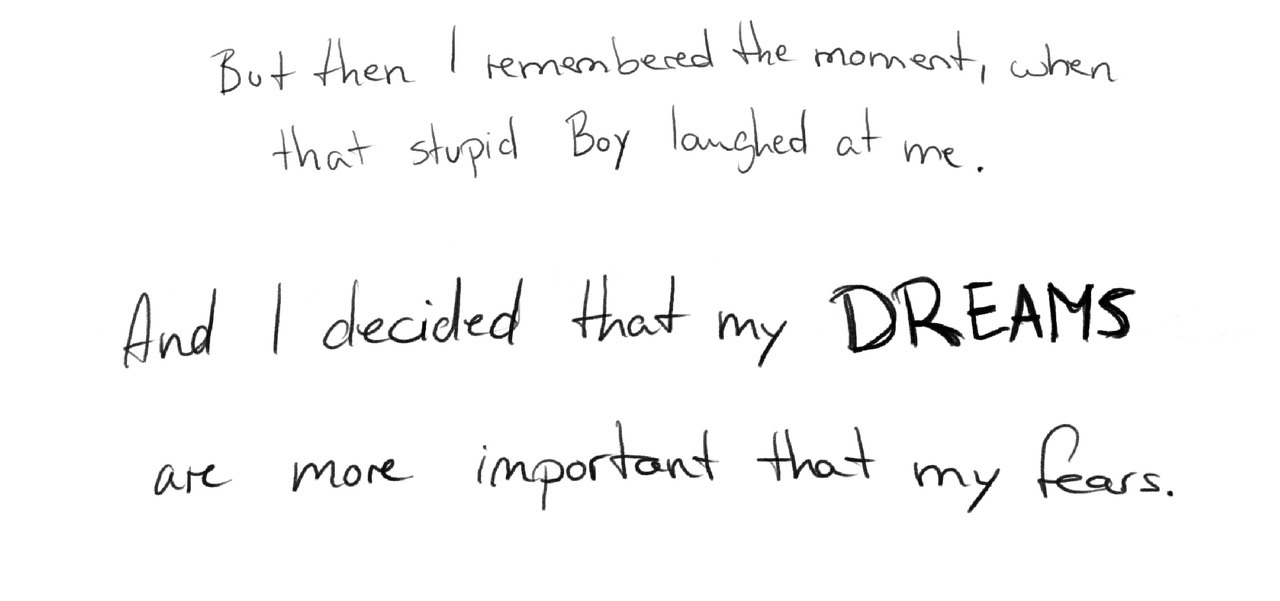 But then I remembered the moment, when
that stupid Boy laughed at me.
And I decided that my DREAMS
are more important that my fears.